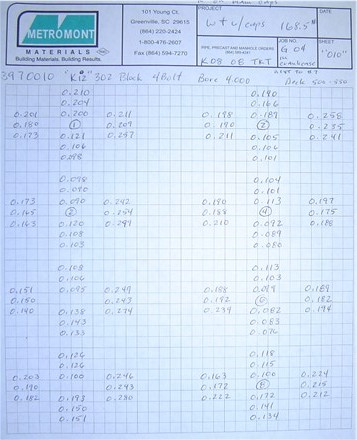 METROMONT
MATERIALS
Building Materials. Building Results.
101 Young Ct.
Greenville, SC 29615
(864) 220-2424
1-800-476-2607
Fax (864) 594-7270
PROJECT
W + W/caps 168.5#
DATE
PIPE, PRECAST AND MANHOLE ORDERS
JOB NO.
G 04
SHEET
"010"
K08 OE TKT
3970010 "K12" 302 Block 4 Bolt Bore 4.000 Deck
0.210 0.190
0.204 0.166
0.201 0.200 0.211 0.198 0.187 0.258
0.180 1 0.209 0.190 2 0.235
0.173 0.121 0.247 0.211 0.105 0.241
0.106 0.106
0.098 0.101
0.098 0.104
0.090 0.101
0.173 0.090 0.242 0.190 0.113 0.197
0.165 0.254 0.188 4 0.175
0.163 0.120 0.247 0.210 0.092 0.188
0.108 0.089
0.103 0.080
0.108 0.113
0.106 0.103
0.151 0.095 0.249 0.188 0.099 0.189
0.150 0.243 0.192 6 0.182
0.140 0.138 0.274 0.234 0.082 0.194
0.143 0.083
0.133 0.076
0.126 0.118
0.126 0.115
0.203 0.100 0.246 0.163 0.100 0.224
0.190 0.243 0.172 8 0.215
0.182 0.193 0.280 0.222 0.172 0.212
0.150 0.141
0.151 0.134